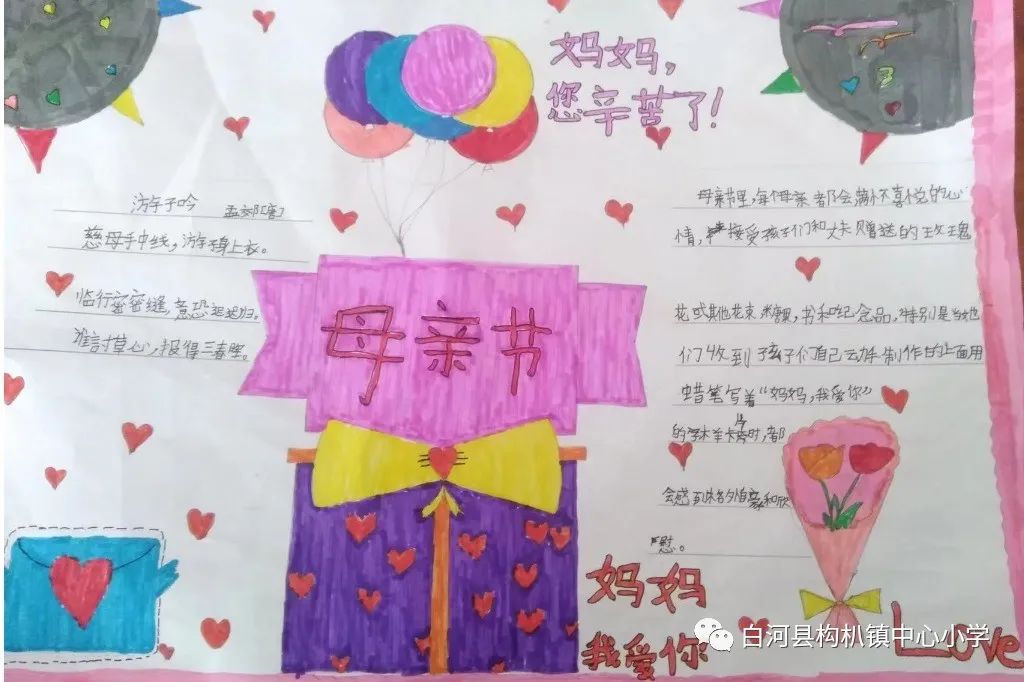 妈妈，
您辛苦了！
游子吟 孟郊[唐]
慈母手中线，游子身上衣。
临行密密缝，意恐迟迟归。
草心，报得三春晖。
母亲节
母亲节里，每个母亲都会满怀喜悦的心
情，接受孩子们和丈夫赠送的玫瑰
花或其他花束，糖果，书和纪念品，特别是当她
们收到孩子们自己动手制作的上面用
蜡笔写着“妈妈，我爱你”
的字样卡片时，都
会感到格外自豪和欣
慰。
妈妈
我爱你
Love
白河县构朳镇中心小学